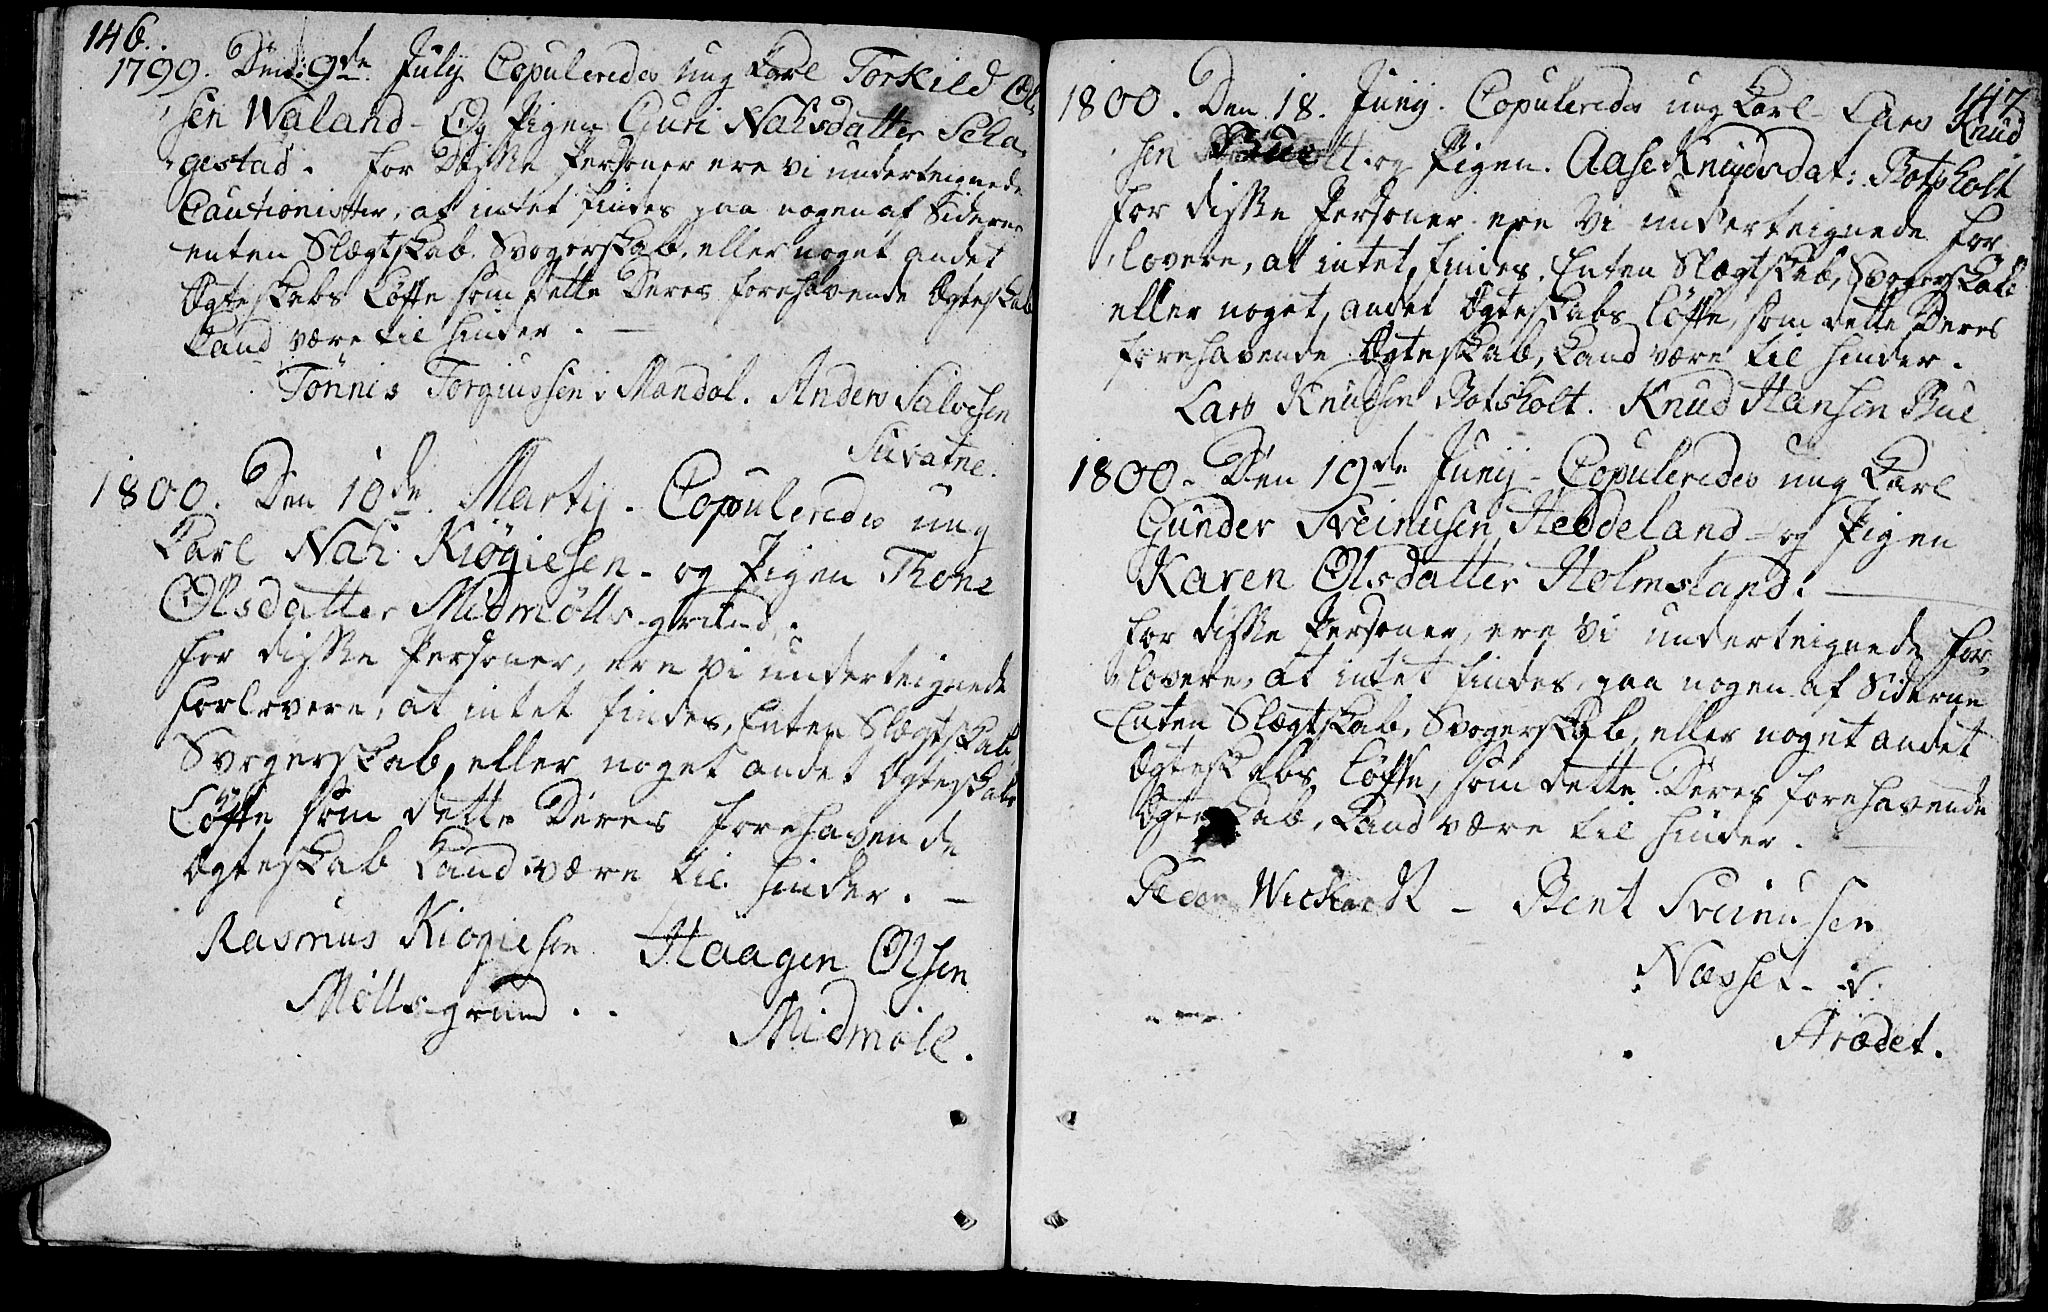 146.
1799. Den: 9de. July Copuleredes ung Karl Torkild Ol
sen Waland - Og Pigen Guri Nahsdatter Scha,
gestad. for Disse Personer ere vi underteignede
Cautionister, at intet findes paa nogen af Siderne
enten Slægtskab, Svogerskab, eller noget andet
Ægteskabs Løffte som dette Deres forehavende Ægteskab
kand være til hinder. —
Tönnis Torgiussen i Mandal. Anders Salvesen
1800. Den 10de. Martij. Copuleredes ung
Karl Nah. Kiøgiesen - og Pigen Thone
Olsdatter Midmølls-grund.
for disse Personer, ere vi underteignede
forlovere, at intet findes, Enten Slægtskab,
Svogerskab, eller noget andet Ægteskabs
Løffte som dette Deres forehavende
Ægteskab kand være til hinder. —
Rasmus Kiøgiesen Haagen Olsen
Mölls-grund. . Midmöll.
147
1800. Den 18. Junij. Copuleredes ung Karl - Lars Knud
sen og Pigen. Aase Knudsdat: Botsholt
for disse Personer ere vi underteignede for,
lovere, at intet findes, Enten Slægtskab, Svogerskab
eller noget, andet Ægteskabs Løffte, som dette Deres
forehavende Ægteskab, kand være til hinder.
Lars Knudsen Botsholt. Knud Hansen Bue
1800. Den 19de Junij - Copuleredes ung Karl
Gunder Sveinusen Heddeland - og Pigen
Karen Olsdatter Holmsland. —
for disse Personer, ere vi underteignede for,
lovere, at intet findes, paa nogen af Siderne
Enten Slægtskab, Svogerskab, eller noget andet
Ægteskabs Løffte, som dette Deres forehavende
Ægteskab, kand være til hinder. —
Peder - Bent Sveinusen
Næsset - i.
Arædet.